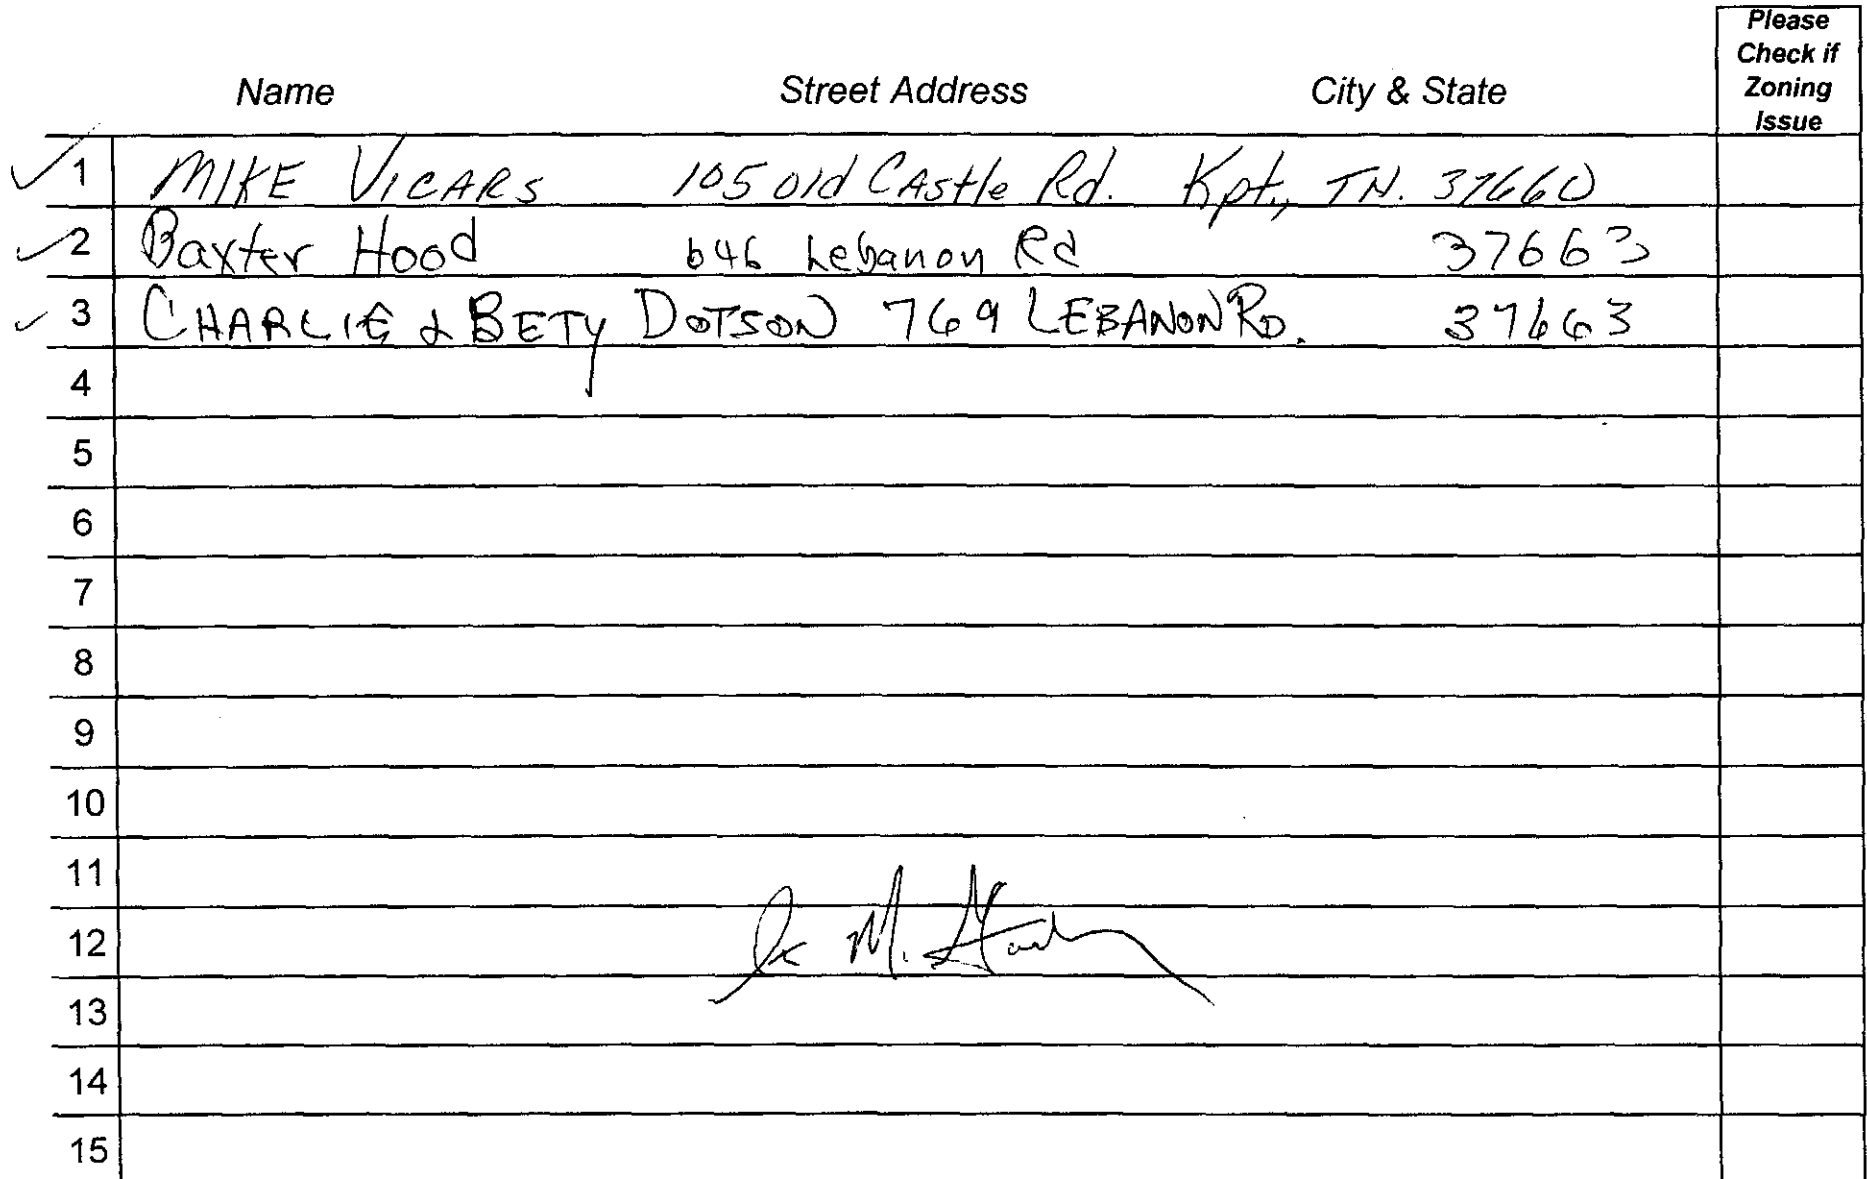 Please
Check if
Name Street Address City & State Zoning
Issue
1 MIKE VICARS 105 Old CAstle Rd. Kpt., TN. 37660
2 Baxter Hood 646 Lebanon Rd 37663
3 CHARLIE & BETY DOTSON 769 LEBANON RD. 37663
4
5
6
7
8
9
10
11
12 M.
13
14
15